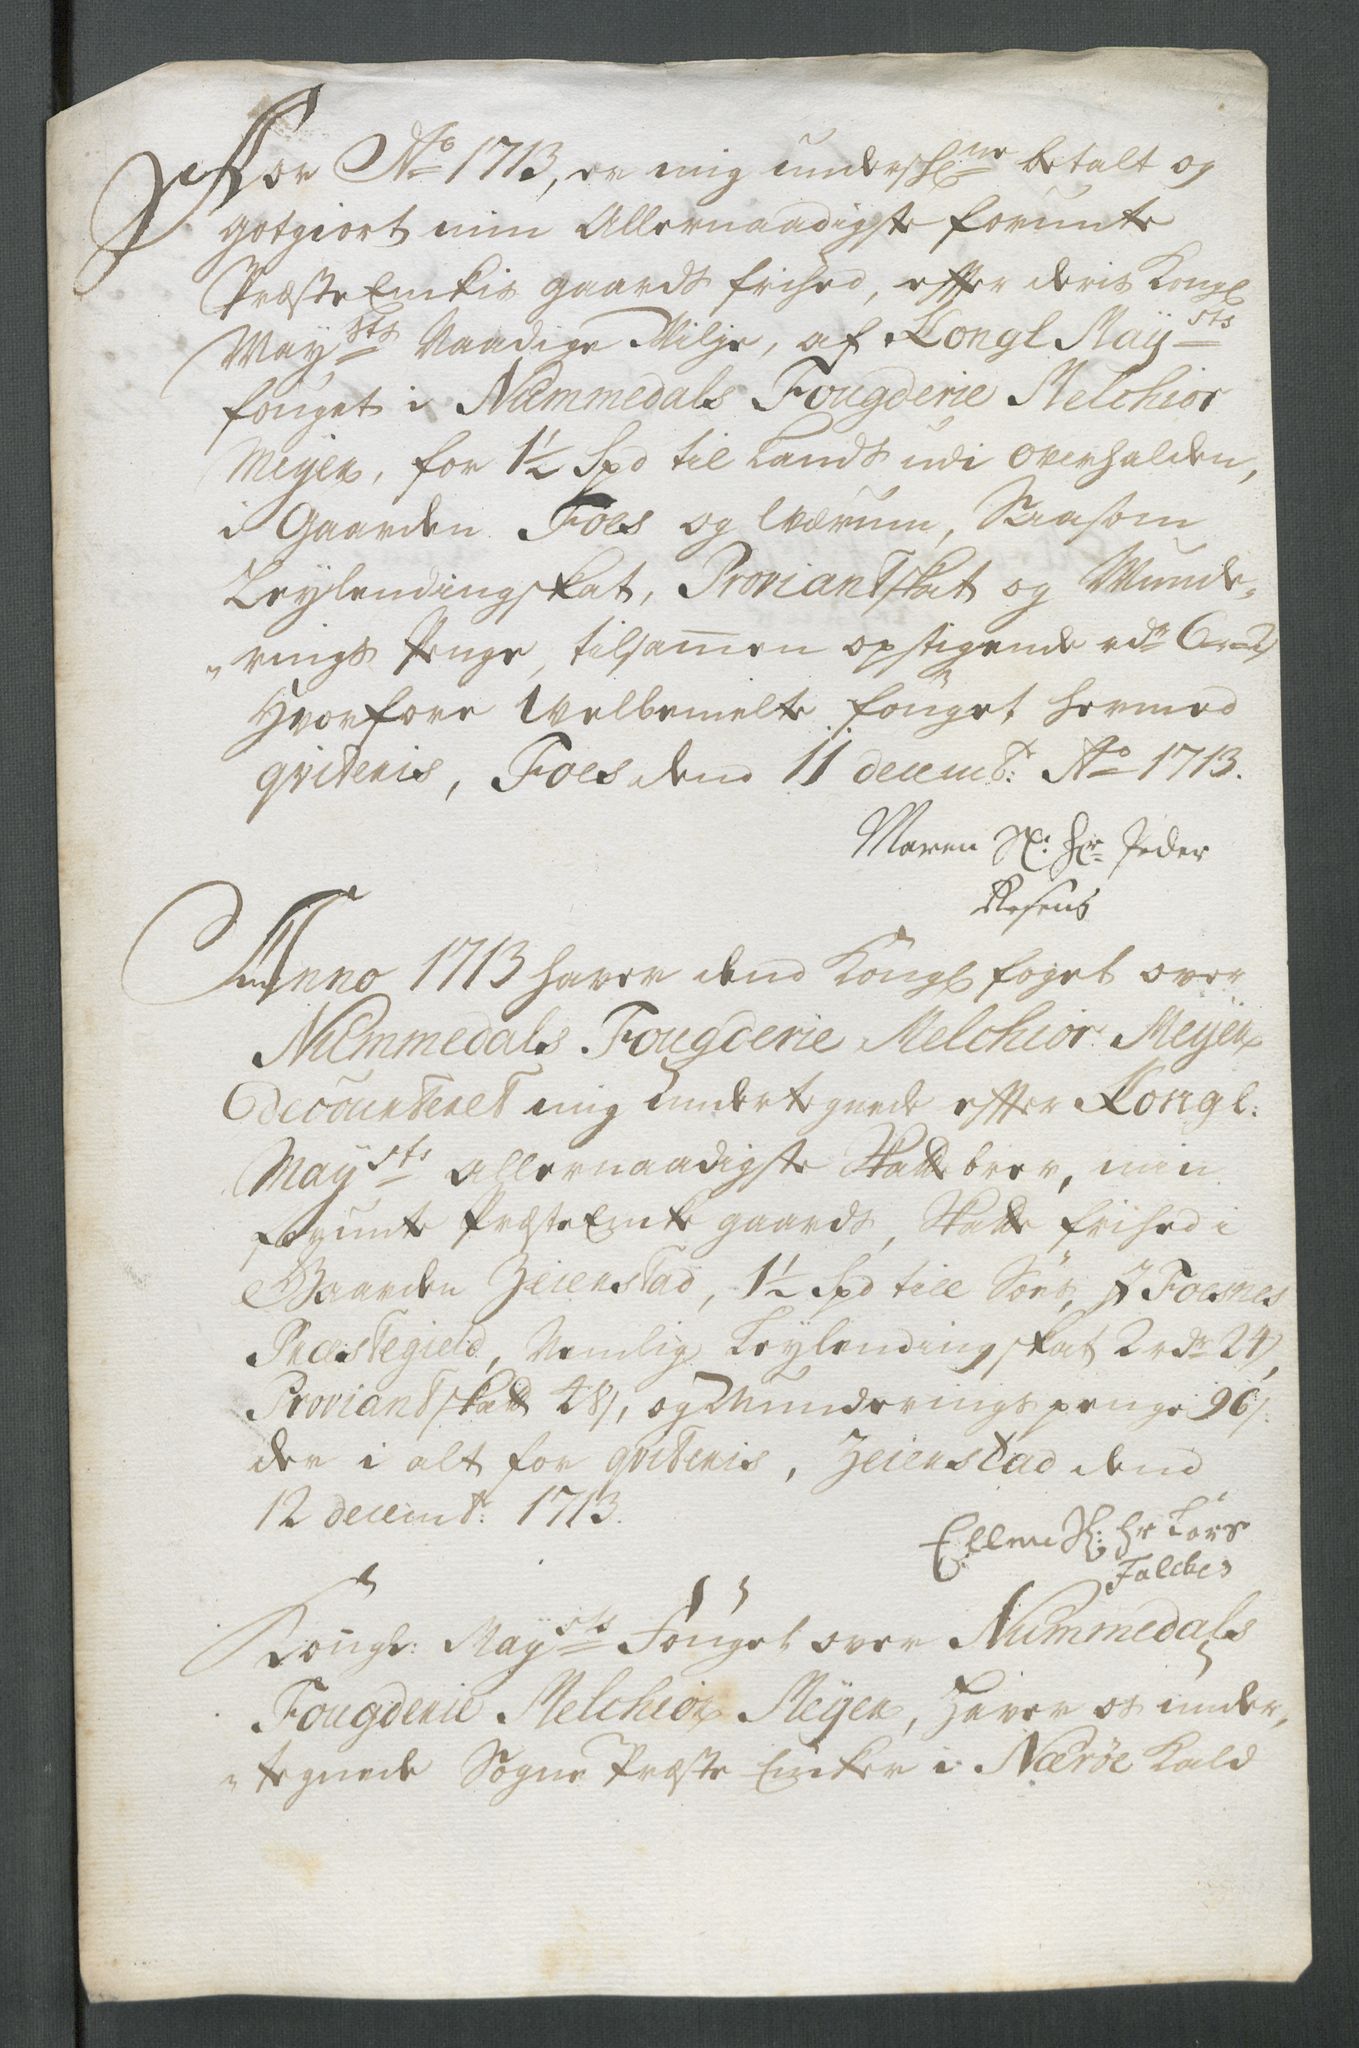 For Ao 1713, er mig underschrefne betalt og
gotgiort min Allernaadigste forunte
Præste Enkis gaards frihed, effter deris Kongl
Maysts Naadige Wilje, af Kongl Maysts
fouget i Nummedals Fougderie Melchior
Meyer, for 1½ Spd til Lands udi Overhalden,
i Gaarden Foes og Værum, Saasom
Leylendingskat, Proviantskat og Munde-
rings Penge, tilsamen opstigende rdr
Hvorfore Welbemelte fouget hermed
qviteris, Foes dend 11 decembr: Ao 1713.
Maren Sl: Hr Peder
Resens
Anno 1713 haver dend Kongl foget over
Nummedals Fougderie Melchior Meyer
decourteret mig undertegnede effter Kongl:
Maysts allernaadigste Skatte brev, min
forunte Præste Enke gaards, Skatte frihed i
Gaarden Zeierstad, 1½ Spd till Søes, i Foesnes
Præstegield, Nemlig Leylendingskat 2 rdr 24 s,
Proviantskatt 48 s, og Munderings penge 96 s.
der i alt for qviteris, Zeierstad dend
12 decembr: 1713.
Ellen Sl: Hr Lars
Falches
Kongl: Maysts Fouget over Nummedals
Fougderie Melchior Meyer, Haver os under,
tegnede Sogne Præste Enker i Nærøe Kald